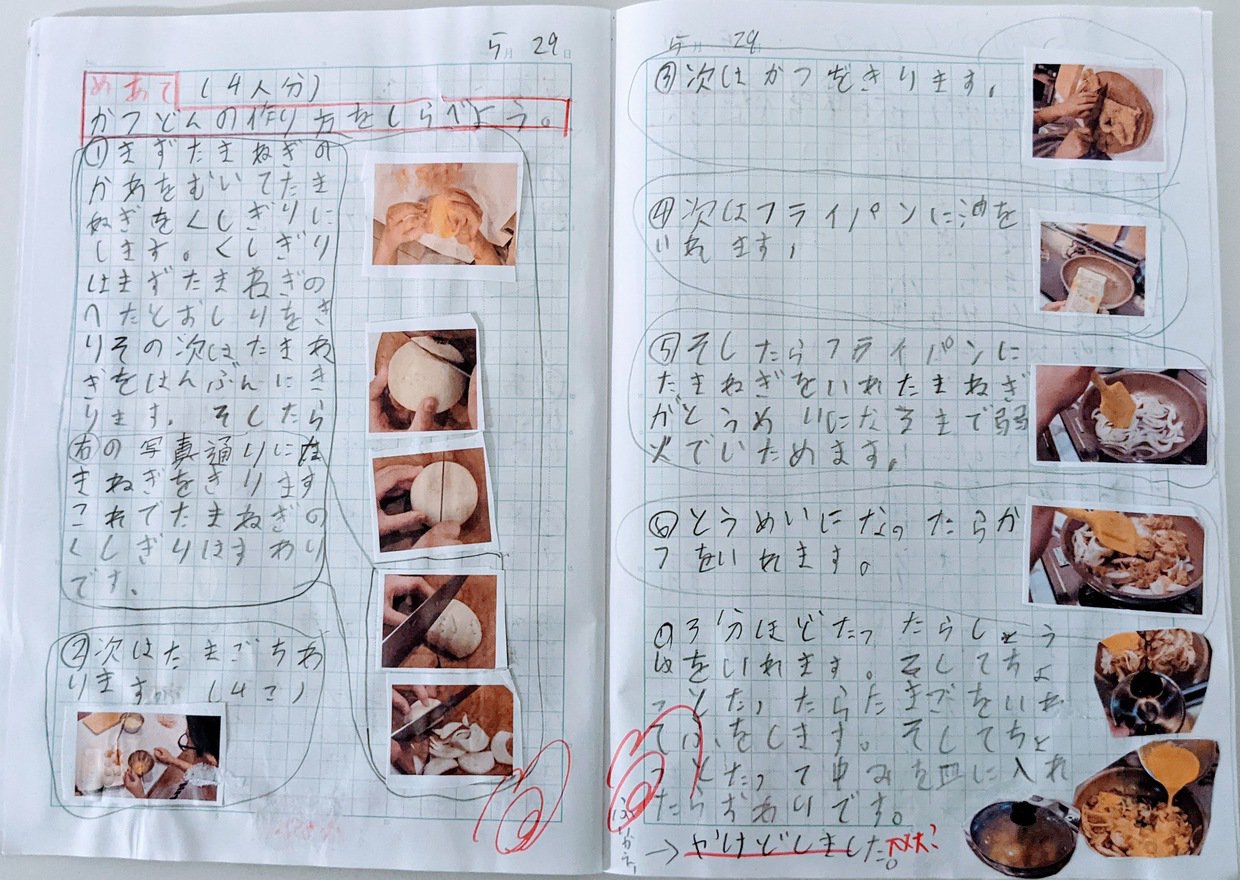 5月 29日
めあて (4人分)
かつどんの作り方をしらべよう。
①まずたまねぎの
かわをむいてたま
ねぎをくしぎりに
します。くしぎり
はまずたまねぎの
へたとおしりをき
りその次はたまね
ぎをはんぶんにき
ります。そしたら
右の写真通りにた
まねぎをきります
これでたまねぎの
くしぎりはすわり
です。
②次はたまご
ります (4こ)
5月 29日
③次はかつをきります。
④次はフライパンに油を
いれます。
⑤そしたらフライパンに
たまねぎをいれたまねぎ
がとうめいになるまで弱
火でいためます。
⑥とうめいになったらか
つをいれます。
3分ほどたったらしょう
ゆをいれます。そしてちょ
っとたったらたまごをいれ
てふたをします。そしてちょ
っとたって中みを皿に入れ
たらおわりです。
→やけどしました。